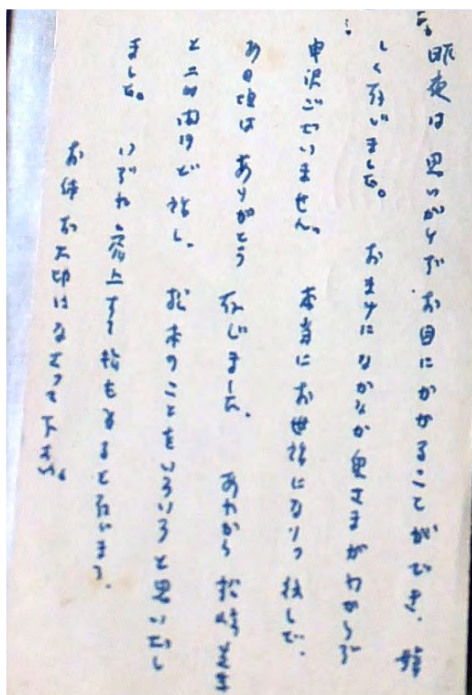 昨夜は思いがけずお目にかかることができ、嬉
しく存じました。おまけになかなか奥さまがわからず
申訳ございません。本当にお世話になりっ放しで、
あの頃はありがとう存じました。あれから松崎先生
と二時間ほど話し、松本のことをいろいろと思いだし
ました。
いずれ参上する機もあると存じます。
お体お大切になさって下さい。